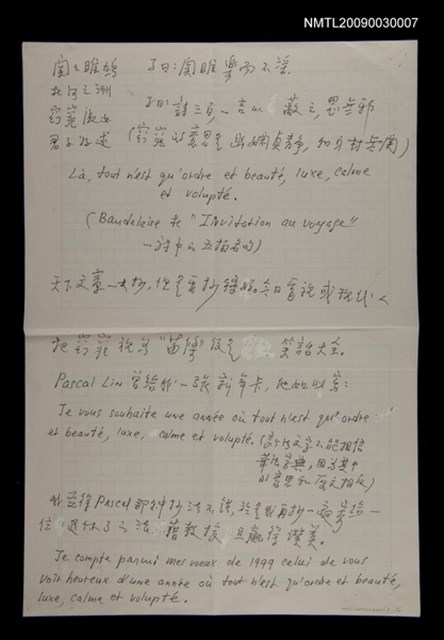 NMTL20090030007
関々雎鳩
在河之洲
窈窕淑女
君子好逑
子曰:関雎樂而不淫.
子曰:詩三百,一言以蔽之,思無邪
(窈窕的意思是幽嫻貞靜,
Là, tout n'est qu'ordre et beauté, luxe, calme
et volupté.
(Baudelaire 在 "Invitation au voyage"
一詩中的
天下文章一大抄,但是要抄得好。今日
把窈窕 "苗條" 笑話大全。
Pascal Lin 曾給我一張新年卡,他如此寫:
Je vous souhaite une année où tout n'est qu'ordre
et beauté, luxe, calme et volupté.
不能相信
字典,因為其中
的意思和原文相反)
我覺得 Pascal 那种抄法不錯,於是我再抄一
位退休了的法籍教授,且贏得讚美。
Je compte parmi mes voeux de 1999 celui de vous
voir heureux d'une année où tout n'est qu'ordre et beauté,
luxe, calme et volupté.